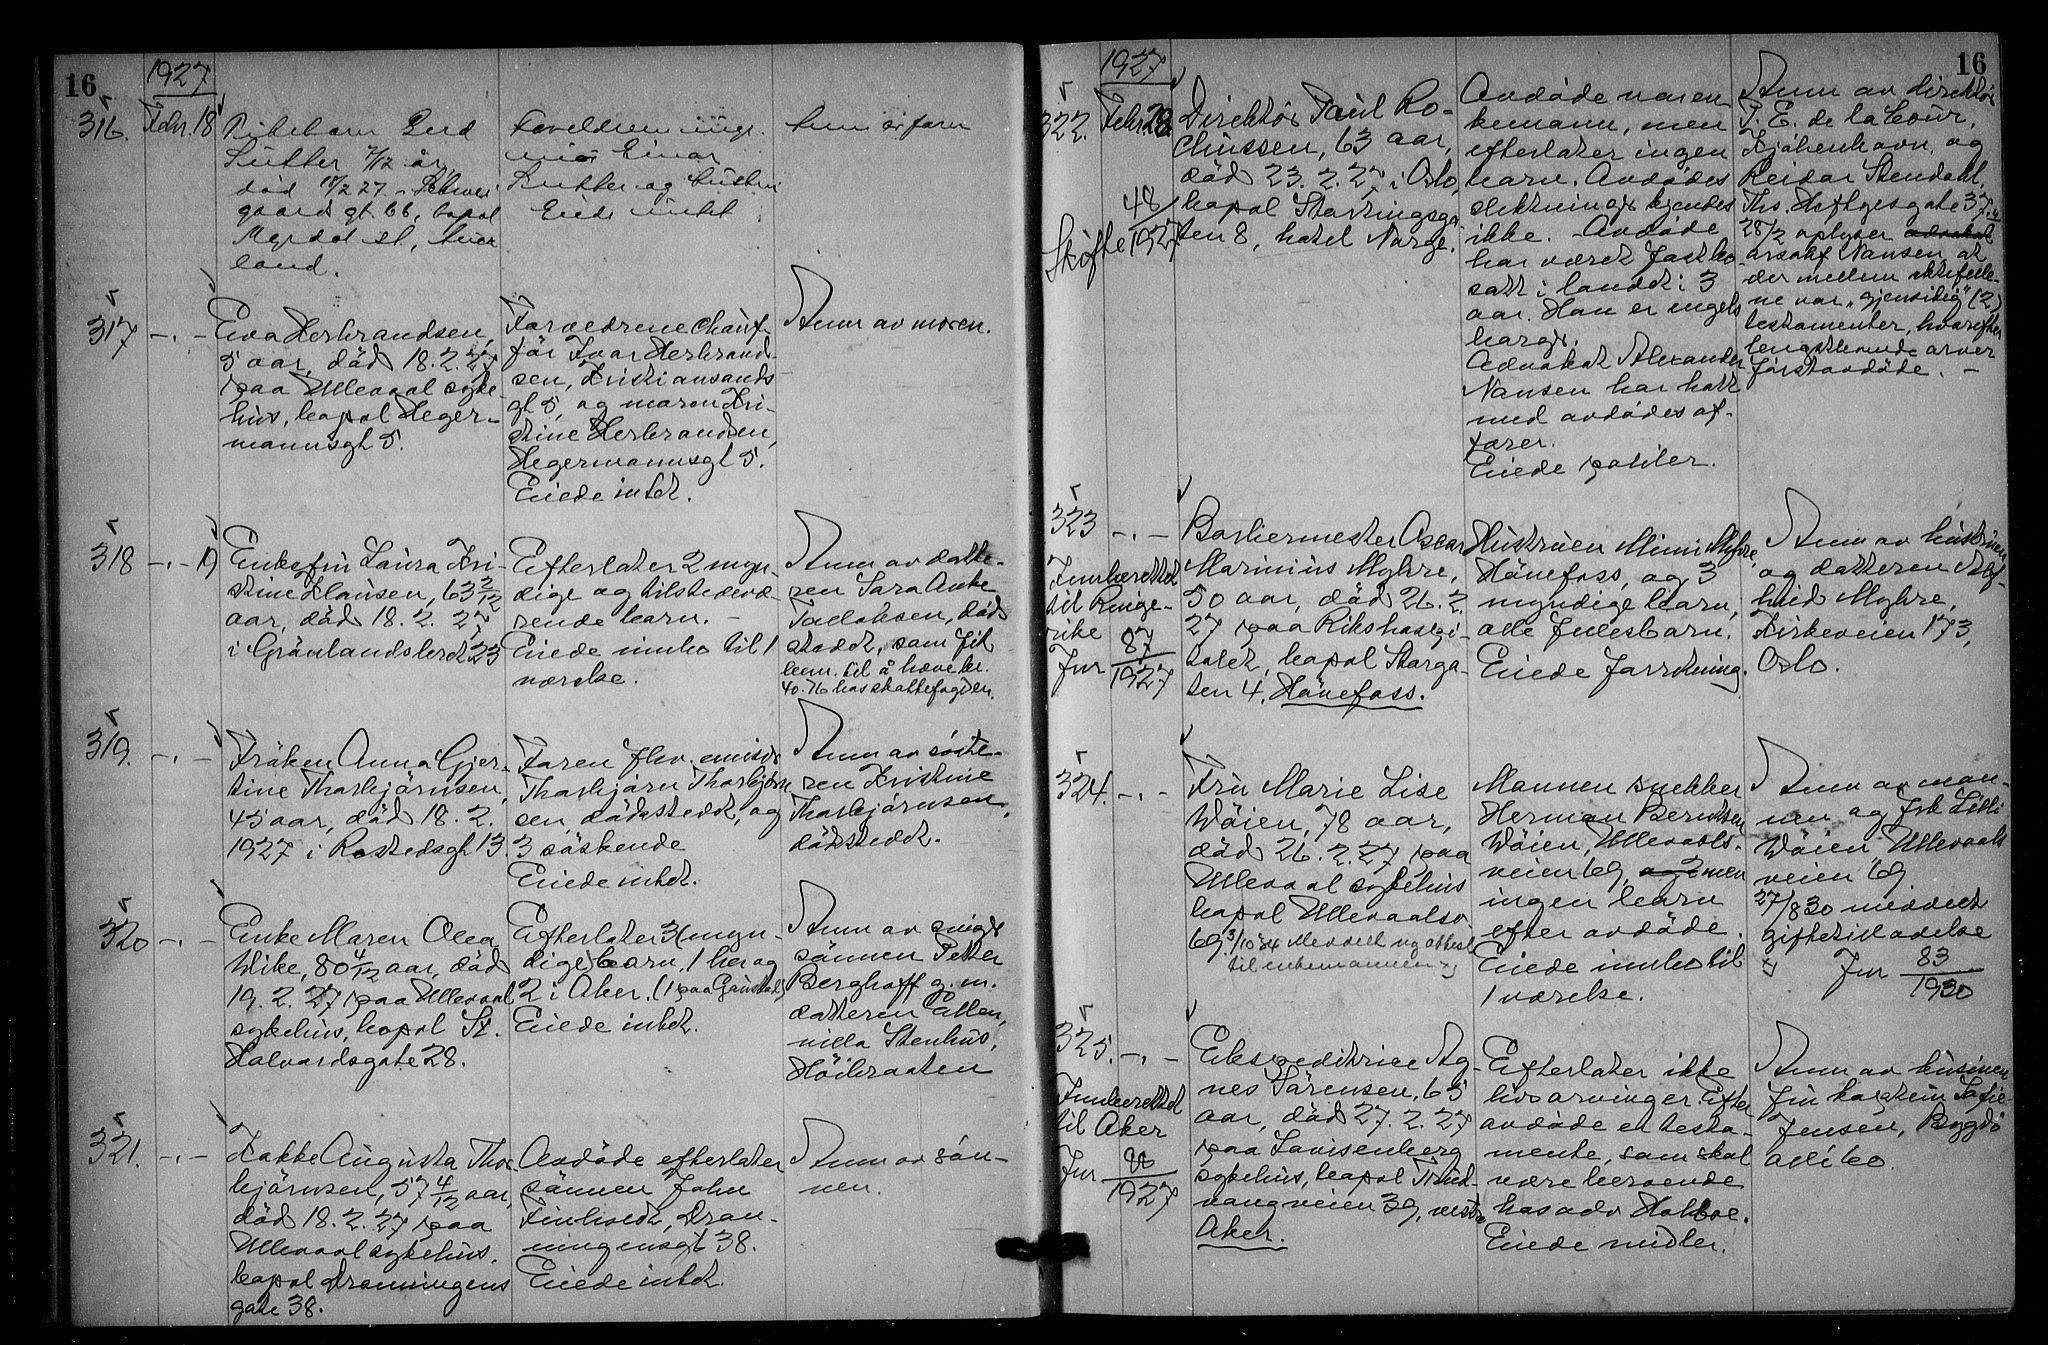 16
1927
316. Febr. 18
Pikebarn Gerd
Sutter 7/12 år
død 18/2 27 - Schwei
gaards gt. 66, bopæl
Myrdal st,
land.
Forældrene
Einar
Sutter og hustru
Eiede intet
Anm av faren
317 -"-
Eva Herbrandsen,
5 aar, död 18.2.27
paa Ullevaal syke-
hus, bopæl Heger-
mannsgt 5.
Forældrene chauf-
för Ivar Herbrand-
sen, Kristiansands
gt 5, og moren Kri-
stine Herbrandsen,
Hegermannsgt 5.
Eiede intet.
Anm av moren.
318 -"- 19
Enkefru Laura Kri-
stine Hansen, 63 2/12
aar, död 18.2.27
i Grönlandsleret 23
Efterlater 2 myn-
dige og tilstedevæ-
rende barn. -
Eiede innbo til 1
værelse.
Anm av datte-
ren Sara Anke
död-
stedet, som fik
bem. til å hæve kr.
40.76 hos skattefogden.
319. -"-
Fröken Anna Gjer-
tine Thorbjörnsen,
45 aar, död 18.2.
1927 i Rostedsgt 13.
Faren fhv.
Thorbjörn Thorbjörn
sen, dödsstedet, og
3 söskende
Eiede intet.
Anm av söste-
ren Kristine
Thorbjörnsen,
dödsstedet.
320 -"-
Enke Maren Olea
Wike, 80 4/12 aar, död
19.2.27 paa Ullevaal
sykehus, bopæl St.
Halvardsgate 28.
Efterlater 3 (myn-
dige) barn, 1 her og
2 i Aker. (1 paa Gaustad)
Eiede intet.
Anm av sviger
sönnen Petter
Berghoff g.m.
datteren Ellen,
villa Stenhus,
Höibraaten
321. -"-
Kokke Augusta Thor
björnsen, 57 4/12 aar,
död 18.2.27 paa
Ullevaal sykehus,
bopæl Dronningens
gate 38.
Avdöde efterlater
sönnen John
Finholdt, Dron-
ningensgt 38.
Eiede intet.
Anm av sön-
nen.
16
1927
322. Febr. 28
Skifte 48/1927
Direktör Paul Ro-
chussen, 63 aar,
död 23.2.27 i Oslo,
bopæl Stortingsga
ten 8, hotel Norge.
Avdöde var en-
kemann, men
efterlater ingen
barn. Avdödes
slektninger kjendes
ikke. - Avdöde
har været fast bo-
satt i landet i 3
aar. Han er engelsk
borger.
Advokat Alexander
Nansen har hatt
med avdödes af-
færer.
Eiede papirer.
Anm av direktör
T. E. de la Cour,
Kjöbenhavn, og
Reidar Stendahl,
Ths. Heftyesgate 37.
28/2 oplyser advokat
o.r.sakf. Nansen at
der mellem ektefelle-
ne var "gjensidig" (2)
testamenter, hvorefter
lengstlevende arver
förstavdöde. -
323 -"-
Innberettet
til Ringe-
rike
Jnr 87/1927
Barbermester Oscar
Marinius Myhre,
50 aar, död 26.2.
27 paa Rikshospi-
talet, bopæl Storga-
ten 4, Hönefoss.
Hustruen Mimi Myhre,
Hönefoss, og 3
myndige barn,
alle fellesbarn.
Eiede forretning.
Anm av hustruen
og datteren Alf-
hild Myhre,
Kirkeveien 173,
Oslo.
324. -"-
Fru Marie Lise
Wöien, 78 aar,
död 26.2.27 paa
Ullevaal sykehus
bopæl Ullevaalsv
69. 3/10 34 Meddelt ny attest
til enkemannen
Mannen snekker
Herman Berntsen
Wöien, Ullevaals-
veien 69, og 2 men
ingen barn
efter avdöde.
Eiede innbo til
1 værelse.
Anm av man-
nen og frk Lilli
Wöien Ullevaals
veien 69
27/8 30 meddelt
giftetillatelse
Jnr 83/1930
325. -"-
Innberettet
til Aker
Jnr 88/1927
Ekspeditrice Ag-
nes Sörensen, 65
aar, död 27.2.27
paa Lovisenberg
sykehus, bopæl Trud-
vangveien 39, vestre
Aker.
Efterlater ikke
livsarvinger. Efter
avdöde et testa-
mente, som skal
være beroende
hos adv Holboe.
Eiede midler.
Anm av kusinen
fru kaptein Sofie
Jensen, Bygdö
allé 60.